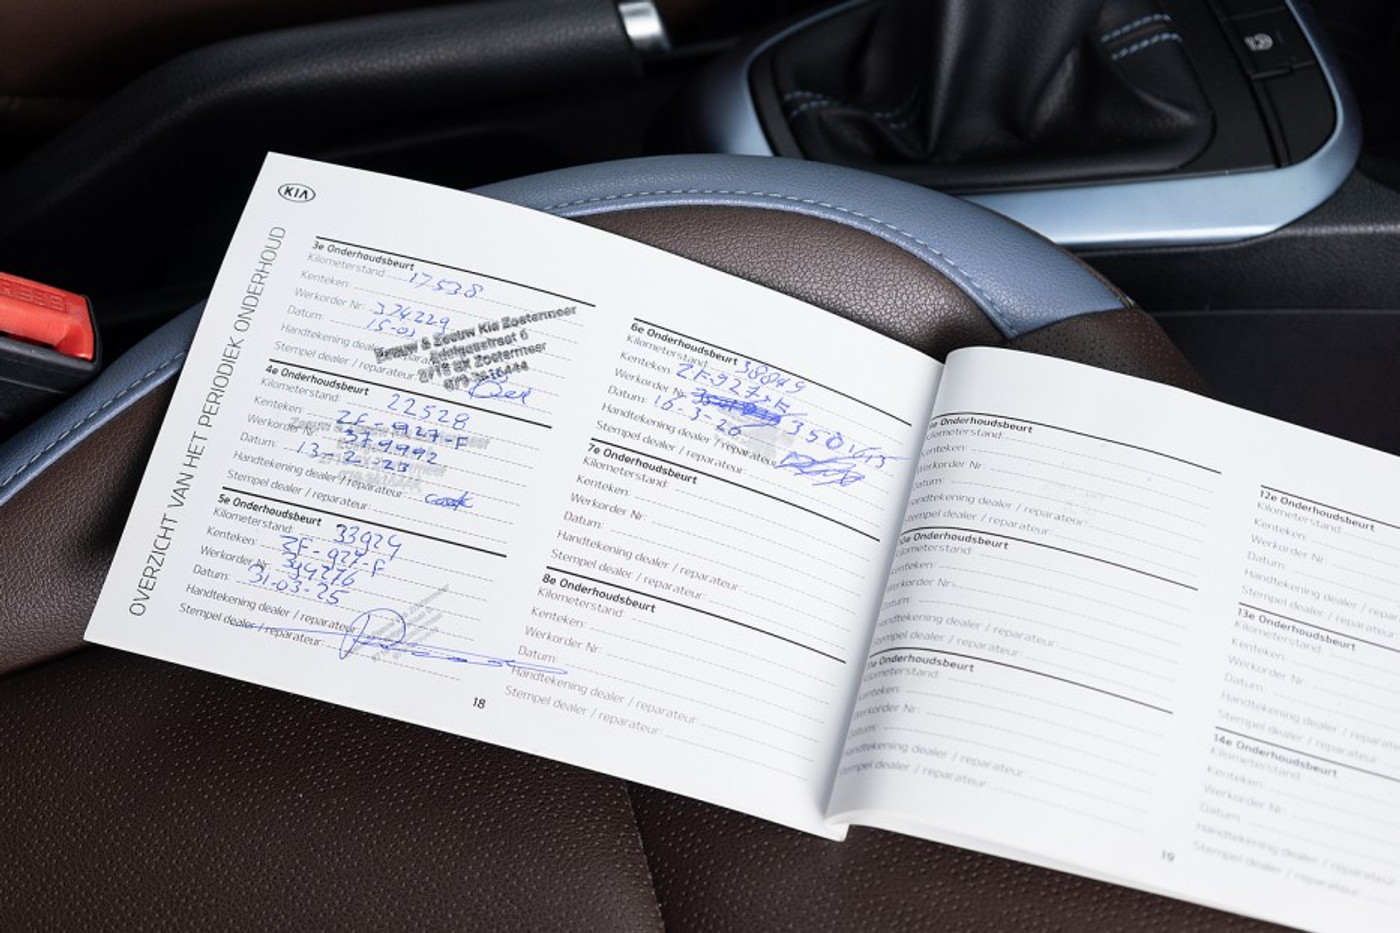 KIA
OVERZICHT VAN HET PERIODIEK ONDERHOUD
3e Onderhoudsbeurt
Kilometerstand: 17538
Kenteken:
Werkorder Nr: 324229
Datum: 15-03
Handtekening dealer / reparateur:
Stempel dealer / reparateur:
Zeeuw & Zeeuw Kia Zoetermeer
Edelgasstraat 6
4e Onderhoudsbeurt
Kilometerstand: 22528
Kenteken: ZF-927-F
Werkorder Nr:
Datum:
Handtekening dealer / reparateur:
Stempel dealer / reparateur:
5e Onderhoudsbeurt
Kilometerstand: 33924
Kenteken: ZF-927-F
Werkorder Nr:
Datum: 31-03-25
Handtekening dealer / reparateur:
Stempel dealer / reparateur:
18
6e Onderhoudsbeurt
Kilometerstand: 38849
Kenteken:
Werkorder Nr:
Datum: 16-3-26
Handtekening dealer / reparateur:
Stempel dealer / reparateur:
7e Onderhoudsbeurt
Kilometerstand:
Kenteken:
Werkorder Nr:
Datum:
Handtekening dealer / reparateur:
Stempel dealer / reparateur:
8e Onderhoudsbeurt
Kilometerstand:
Kenteken:
Werkorder Nr:
Datum:
Handtekening dealer / reparateur:
Stempel dealer / reparateur:
Onderhoudsbeurt
Kilometerstand:
Kenteken:
Werkorder Nr:
Datum:
Handtekening dealer / reparateur:
Stempel dealer / reparateur:
Onderhoudsbeurt
Kilometerstand:
Kenteken:
Werkorder Nr:
Datum:
Handtekening dealer / reparateur:
Stempel dealer / reparateur:
11e Onderhoudsbeurt
Kilometerstand:
Kenteken:
Werkorder Nr:
Datum:
Handtekening dealer / reparateur:
Stempel dealer / reparateur:
19
12e Onderhoudsbeurt
Kilometerstand:
Kenteken:
Werkorder Nr:
Datum:
Handtekening dealer / repara
Stempel dealer / reparateur
13e Onderhoudsbeurt
Kilometerstand:
Kenteken:
Werkorder Nr:
Datum:
Handtekening dealer / repar
Stempel dealer / reparateur
14e Onderhoudsbeurt
Kilometerstand:
Kenteken:
Werkorder Nr:
Datum:
Handtekening dealer / repa
Stempel dealer / reparateur